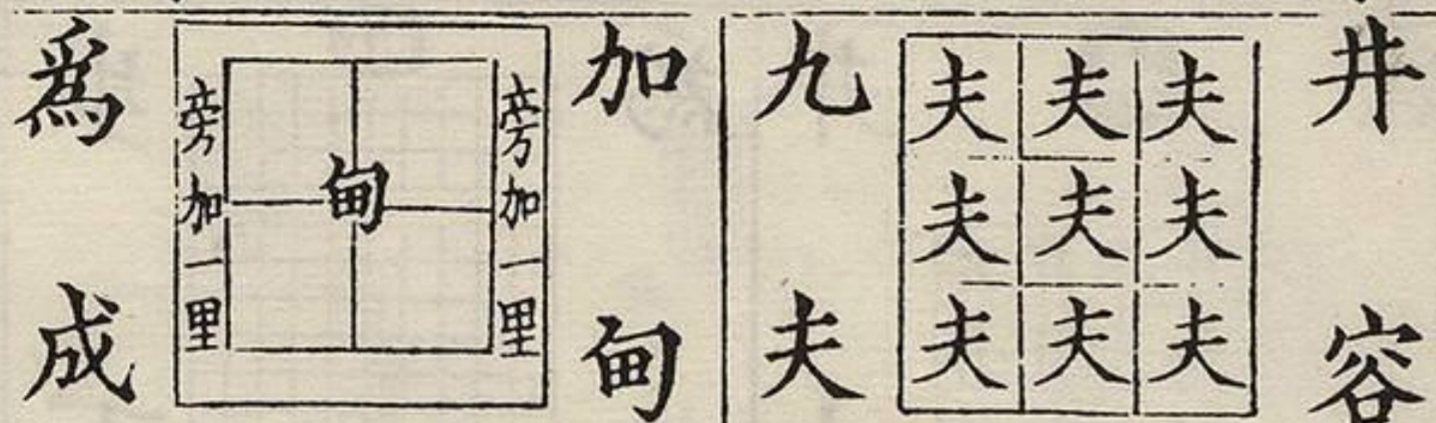 井容
夫夫夫
夫夫夫
夫夫夫
九夫
加甸
旁加一里
甸
旁加一里
爲成